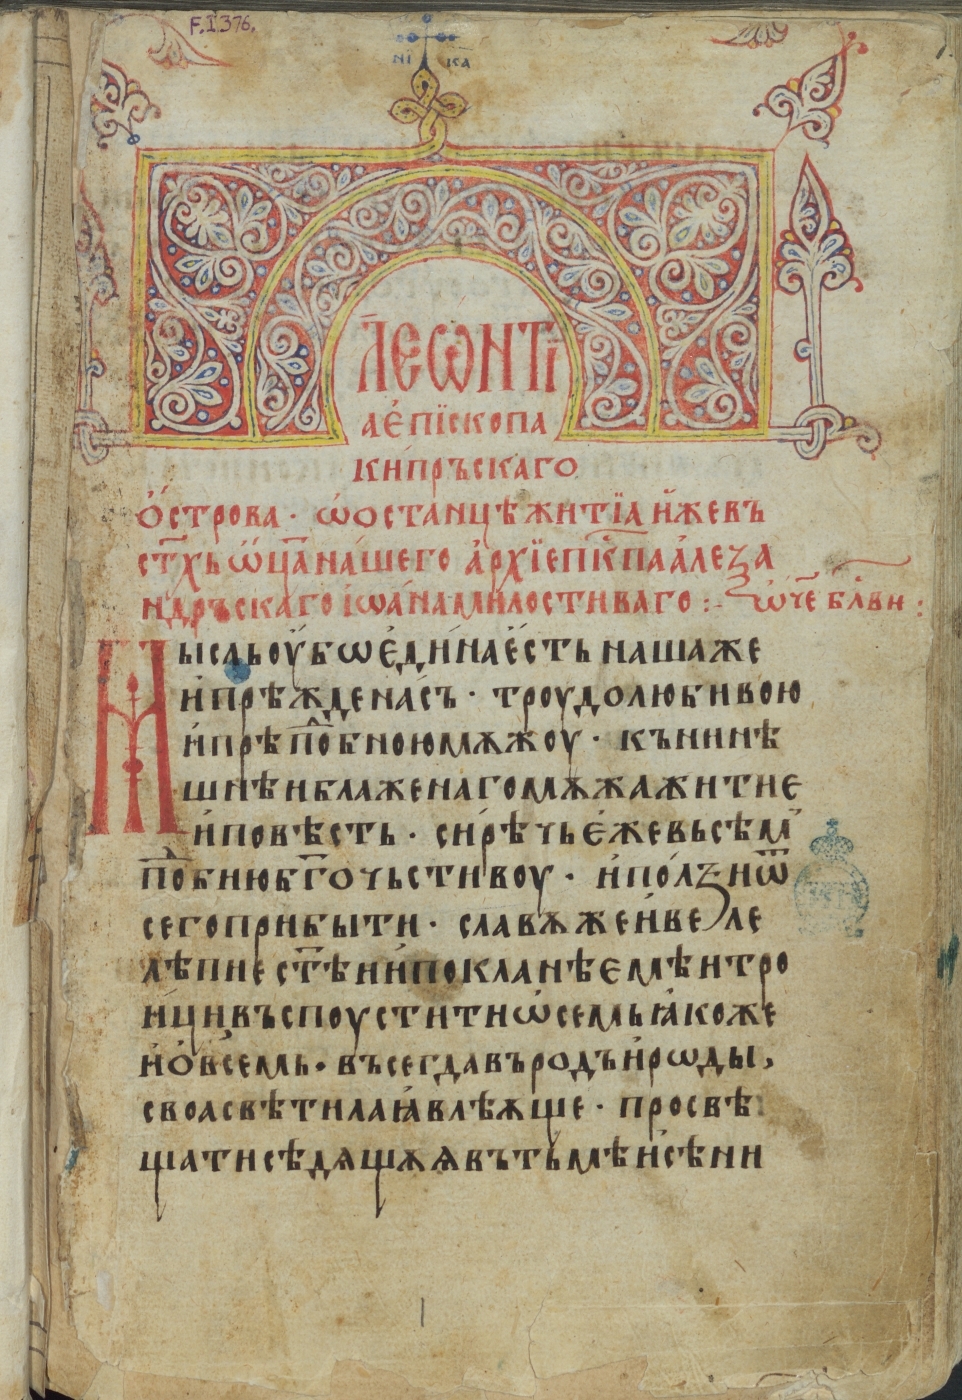 F.I.376.
1.
НІ КА
ЛЕѠНТІ
А Е҆ПЇСКОПА
КИ́ПРЪСКАГО
О҆́строва · ѡ҆останцѣжитїа и҆́жевъ
ст҃хъѡ҆ц҃ана́шего а҆рхїепк҃паа҆леѯа
ндръскагоіѡа́намл҃остиваго :· ѿч҃е бл҃ви :
Мысльоу҆бѡе҆ди́нае҆́стьнашаже
и҆прѣ́жденасъ · троудолюбивою
и҆прѣпⷣобноюмѫжоу · кънинѣ
шнѣиблаженагомѫжажитие
и҆повѣсть · сирѣчье҆́жевьсѣм
пⷣобнюбг҃очьстивоу · и҆по́лѕиѿ
сегоприбыти · славѫжеи҆веле
лѣпиест҃ѣи́покланѣемѣитро
ицивъспоуститиѡ҆семьꙗ҆коже
и҆о҆всемь · въсегдавъродъи҆рѡды,
своасвѣтилаꙗ҆влѣѫще · просвѣ
щатисѣдѧщѫѧвътьмѣи҆сѣни